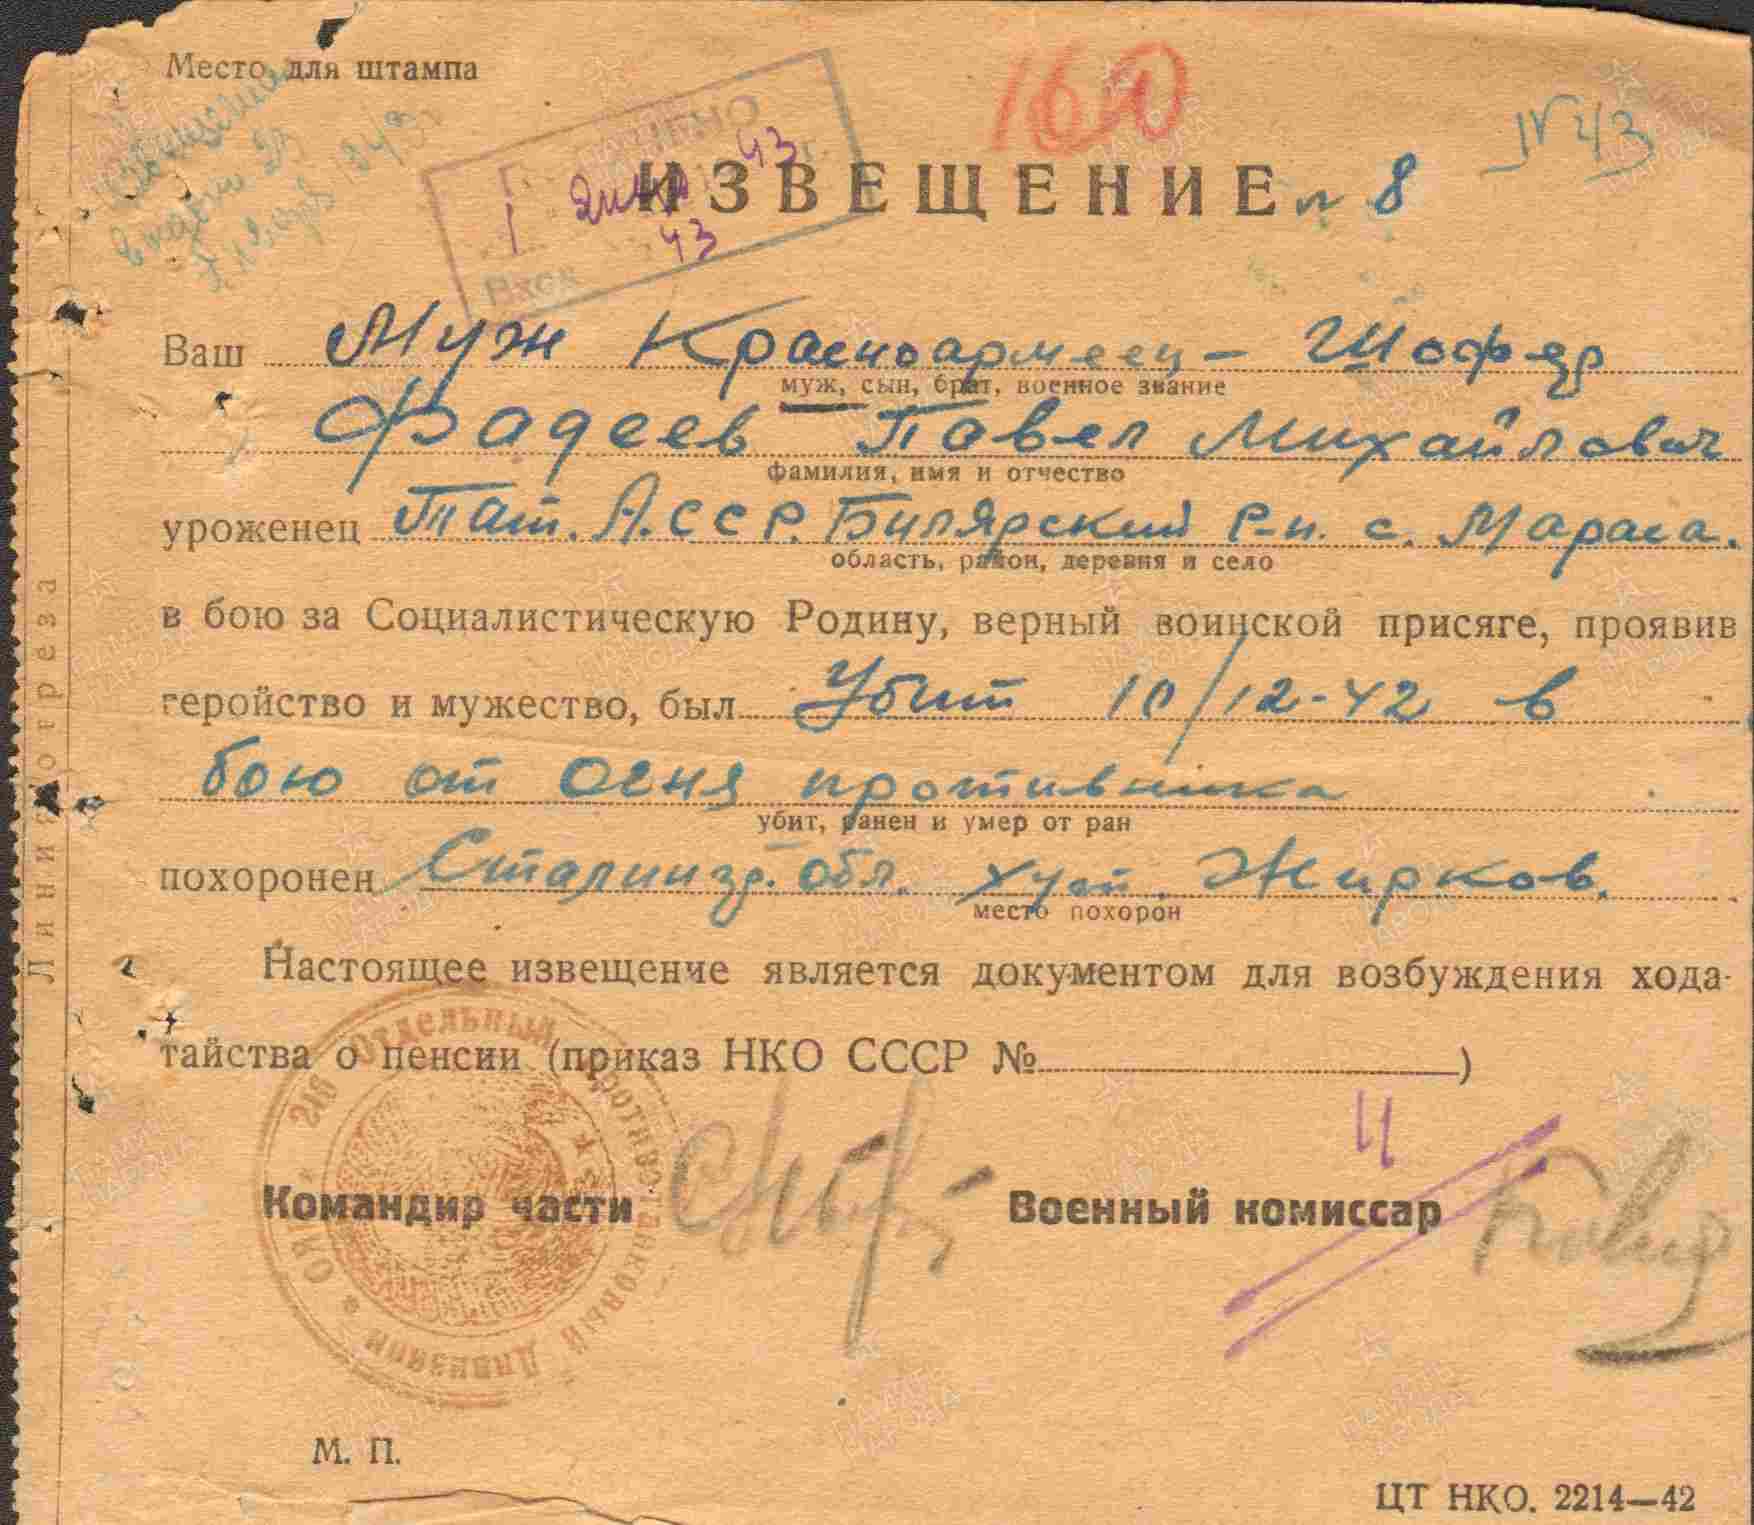 Место для штампа
160
№ 43
янв 43
43
ИЗВЕЩЕНИЕ № 8
Ваш Муж Красноармеец - Шофер
муж, сын, брат, военное звание
Фадеев Павел Михайлович
фамилия, имя и отчество
уроженец Тат. А.ССР. Билярский р-н. с. Мараса.
область, район, деревня и село
в бою за Социалистическую Родину, верный воинской присяге, проявив
геройство и мужество, был Убит 10/12-42 в
бою от огня противника
убит, ранен и умер от ран
похоронен Сталингр. обл. хут. Жирков.
место похорон
Настоящее извещение является документом для возбуждения хода-
тайства о пенсии (приказ НКО СССР № )
Отдельный Противотанковый Дивизион
Командир части Военный комиссар
М. П.
ЦТ НКО. 2214—42
Линия отреза
ПАМЯТЬ НАРОДА